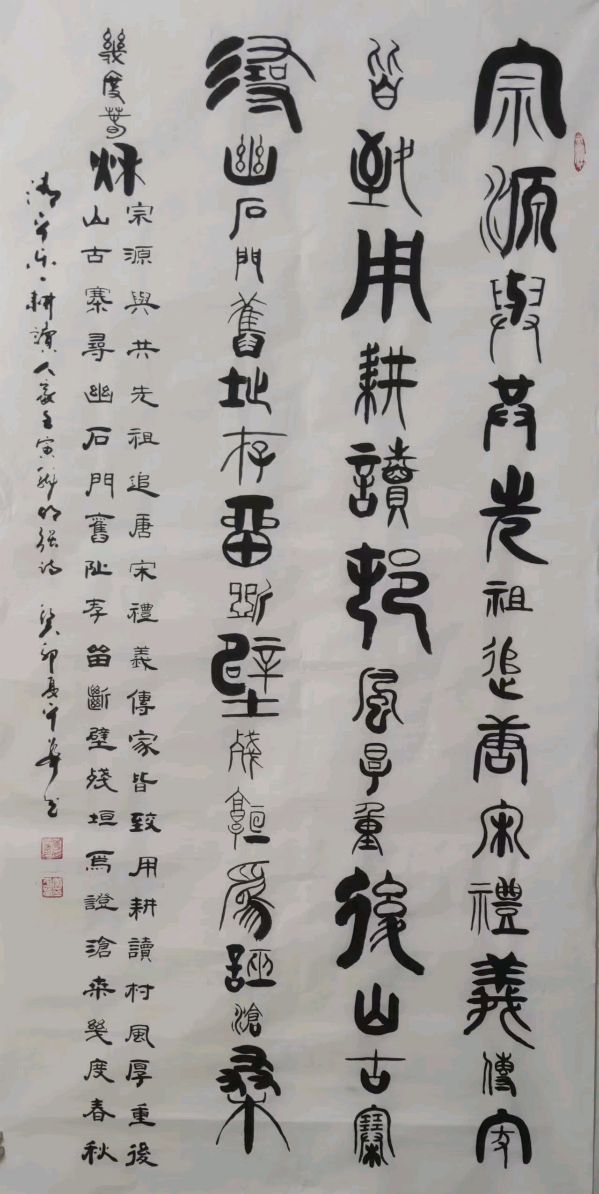 宗源與共先祖追唐宋禮義傳家
皆致用耕讀邨風厚重後山古寨
尋幽石門舊址存留斷壁殘垣為證滄桑
幾度春秋
宗源與共先祖追唐宋禮義傳家皆致用耕讀村風厚重後
山古寨尋幽石門舊阯存留斷壁殘垣爲證滄桒幾度春秋
耕讀人家壬寅 詩 癸卯夏 書